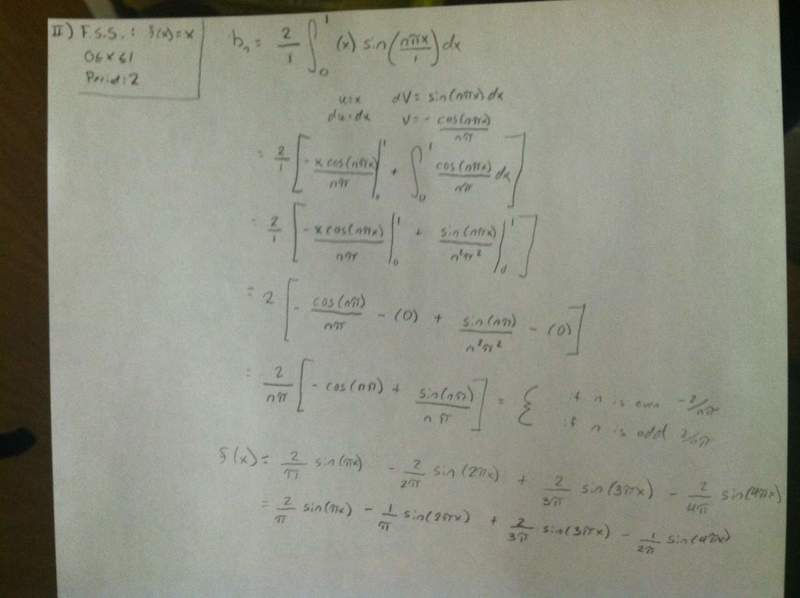 II) F.S.S.: f(x)=x
0≤x≤1
Period: 2
bₙ = 2/1 ∫₀¹ (x) sin(nπx/1) dx
u=x dV = sin(nπx) dx
du=dx V = - cos(nπx)/nπ
= 2/1 [ - x cos(nπx)/nπ |₀¹ + ∫₀¹ cos(nπx)/nπ dx ]
= 2/1 [ - x cos(nπx)/nπ |₀¹ + sin(nπx)/n²π² |₀¹ ]
= 2 [ - cos(nπ)/nπ - (0) + sin(nπ)/n²π² - (0) ]
= 2/nπ [ - cos(nπ) + sin(nπ)/nπ ] = { if n is even -2/nπ
if n is odd 2/nπ
f(x) = 2/π sin(πx) - 2/2π sin(2πx) + 2/3π sin(3πx) - 2/4π sin(4πx)
= 2/π sin(πx) - 1/π sin(2πx) + 2/3π sin(3πx) - 1/2π sin(4πx)